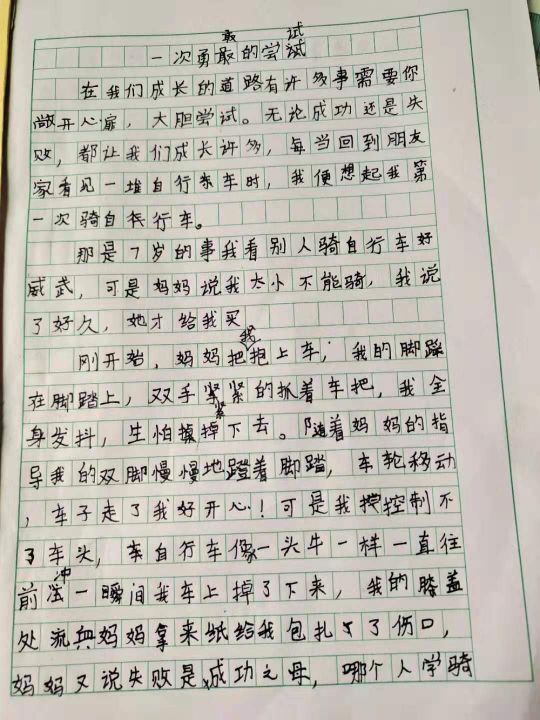 一次勇敢的尝试
在我们成长的道路有许多事需要你
敞开心扉，大胆尝试。无论成功还是失
败，都让我们成长许多，每当回到朋友
家看见一堆自行车时，我便想起我第
一次骑自行车。
那是7岁的事我看别人骑自行车好
威武，可是妈妈说我太小不能骑，我说
了好久，她才给我买
刚开始，妈妈把我抱上车，我的脚踩
在脚踏上，双手紧紧的抓着车把，我全
身发抖，生怕掉下去。随着妈妈的指
导我的双脚慢慢地蹬着脚踏，车轮移动
，车子走了我好开心！可是我控制不
了车头，自行车像一头牛一样一直往
前冲一瞬间我车上掉了下来，我的膝盖
处流血妈妈拿来纸给我包扎了伤口，
妈妈又说失败是成功之母，哪个人学骑